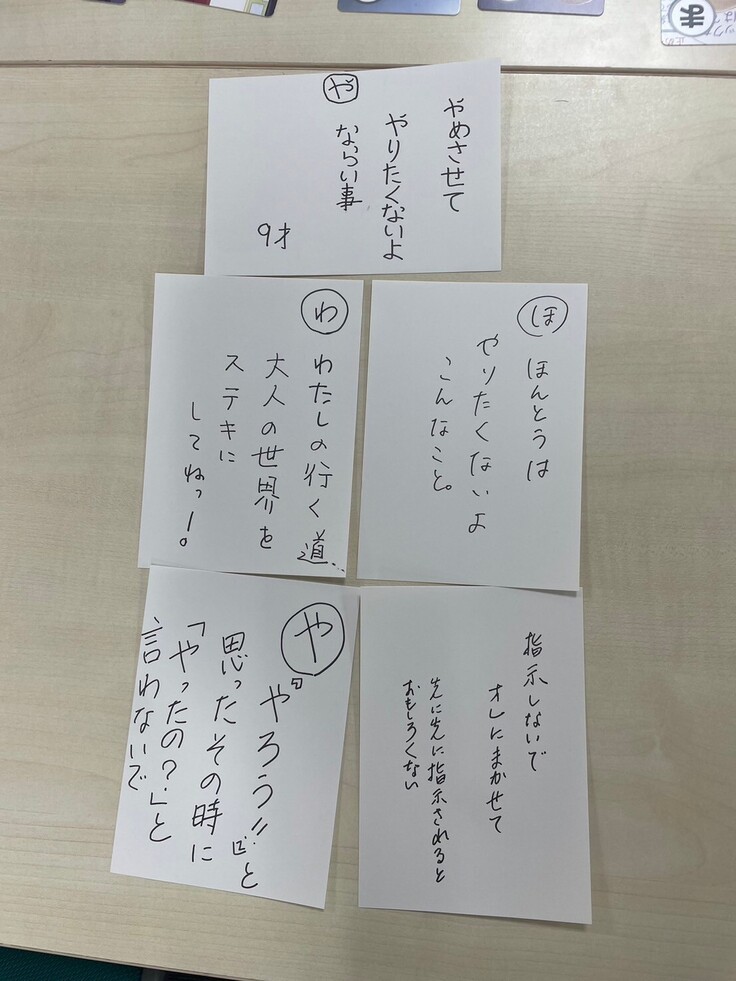 ま
や
やめさせて
やりたくないよ
ならい事
9才
わ
わたしの行く道…
大人の世界を
ステキに
してねっ!。
ほ
ほんとうは
やりたくないよ
こんなこと。
や
『やろう!!』と
思ったその時に
「やったの?」と
言わないで
指示しないで
オレにまかせて
先に先に指示されると
おもしろくない